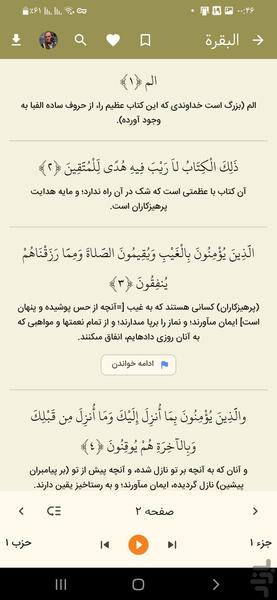 ٪۶۱ ۰۰:۴۶
البقرة
الم ﴿۱﴾
الم (بزرگ است خداوندی که این کتاب عظیم را، از حروف ساده الفبا به
وجود آورده).
ذَلِكَ الْكِتَابُ لاَ رَيْبَ فِيهِ هُدًى لِّلْمُتَّقِينَ ﴿۲﴾
آن کتاب با عظمتی است که شک در آن راه ندارد؛ و مایه هدایت
پرهیزکاران است.
الَّذِينَ يُؤْمِنُونَ بِالْغَيْبِ وَيُقِيمُونَ الصَّلاةَ وَمِمَّا رَزَقْنَاهُمْ
يُنفِقُونَ ﴿۳﴾
(پرهیزکاران) کسانی هستند که به غیب [=آنچه از حس پوشیده و پنهان
است] ایمان می‌آورند؛ و نماز را برپا می‌دارند؛ و از تمام نعمتها و مواهبی که
به آنان روزی داده‌ایم، انفاق می‌کنند.
ادامه خواندن
والَّذِينَ يُؤْمِنُونَ بِمَا أُنزِلَ إِلَيْكَ وَمَا أُنزِلَ مِن قَبْلِكَ
وَبِالآخِرَةِ هُمْ يُوقِنُونَ ﴿۴﴾
و آنان که به آنچه بر تو نازل شده، و آنچه پیش از تو (بر پیامبران
پیشین) نازل گردیده، ایمان می‌آورند؛ و به رستاخیز یقین دارند.
صفحه ۲
جزء ۱
حزب ۱